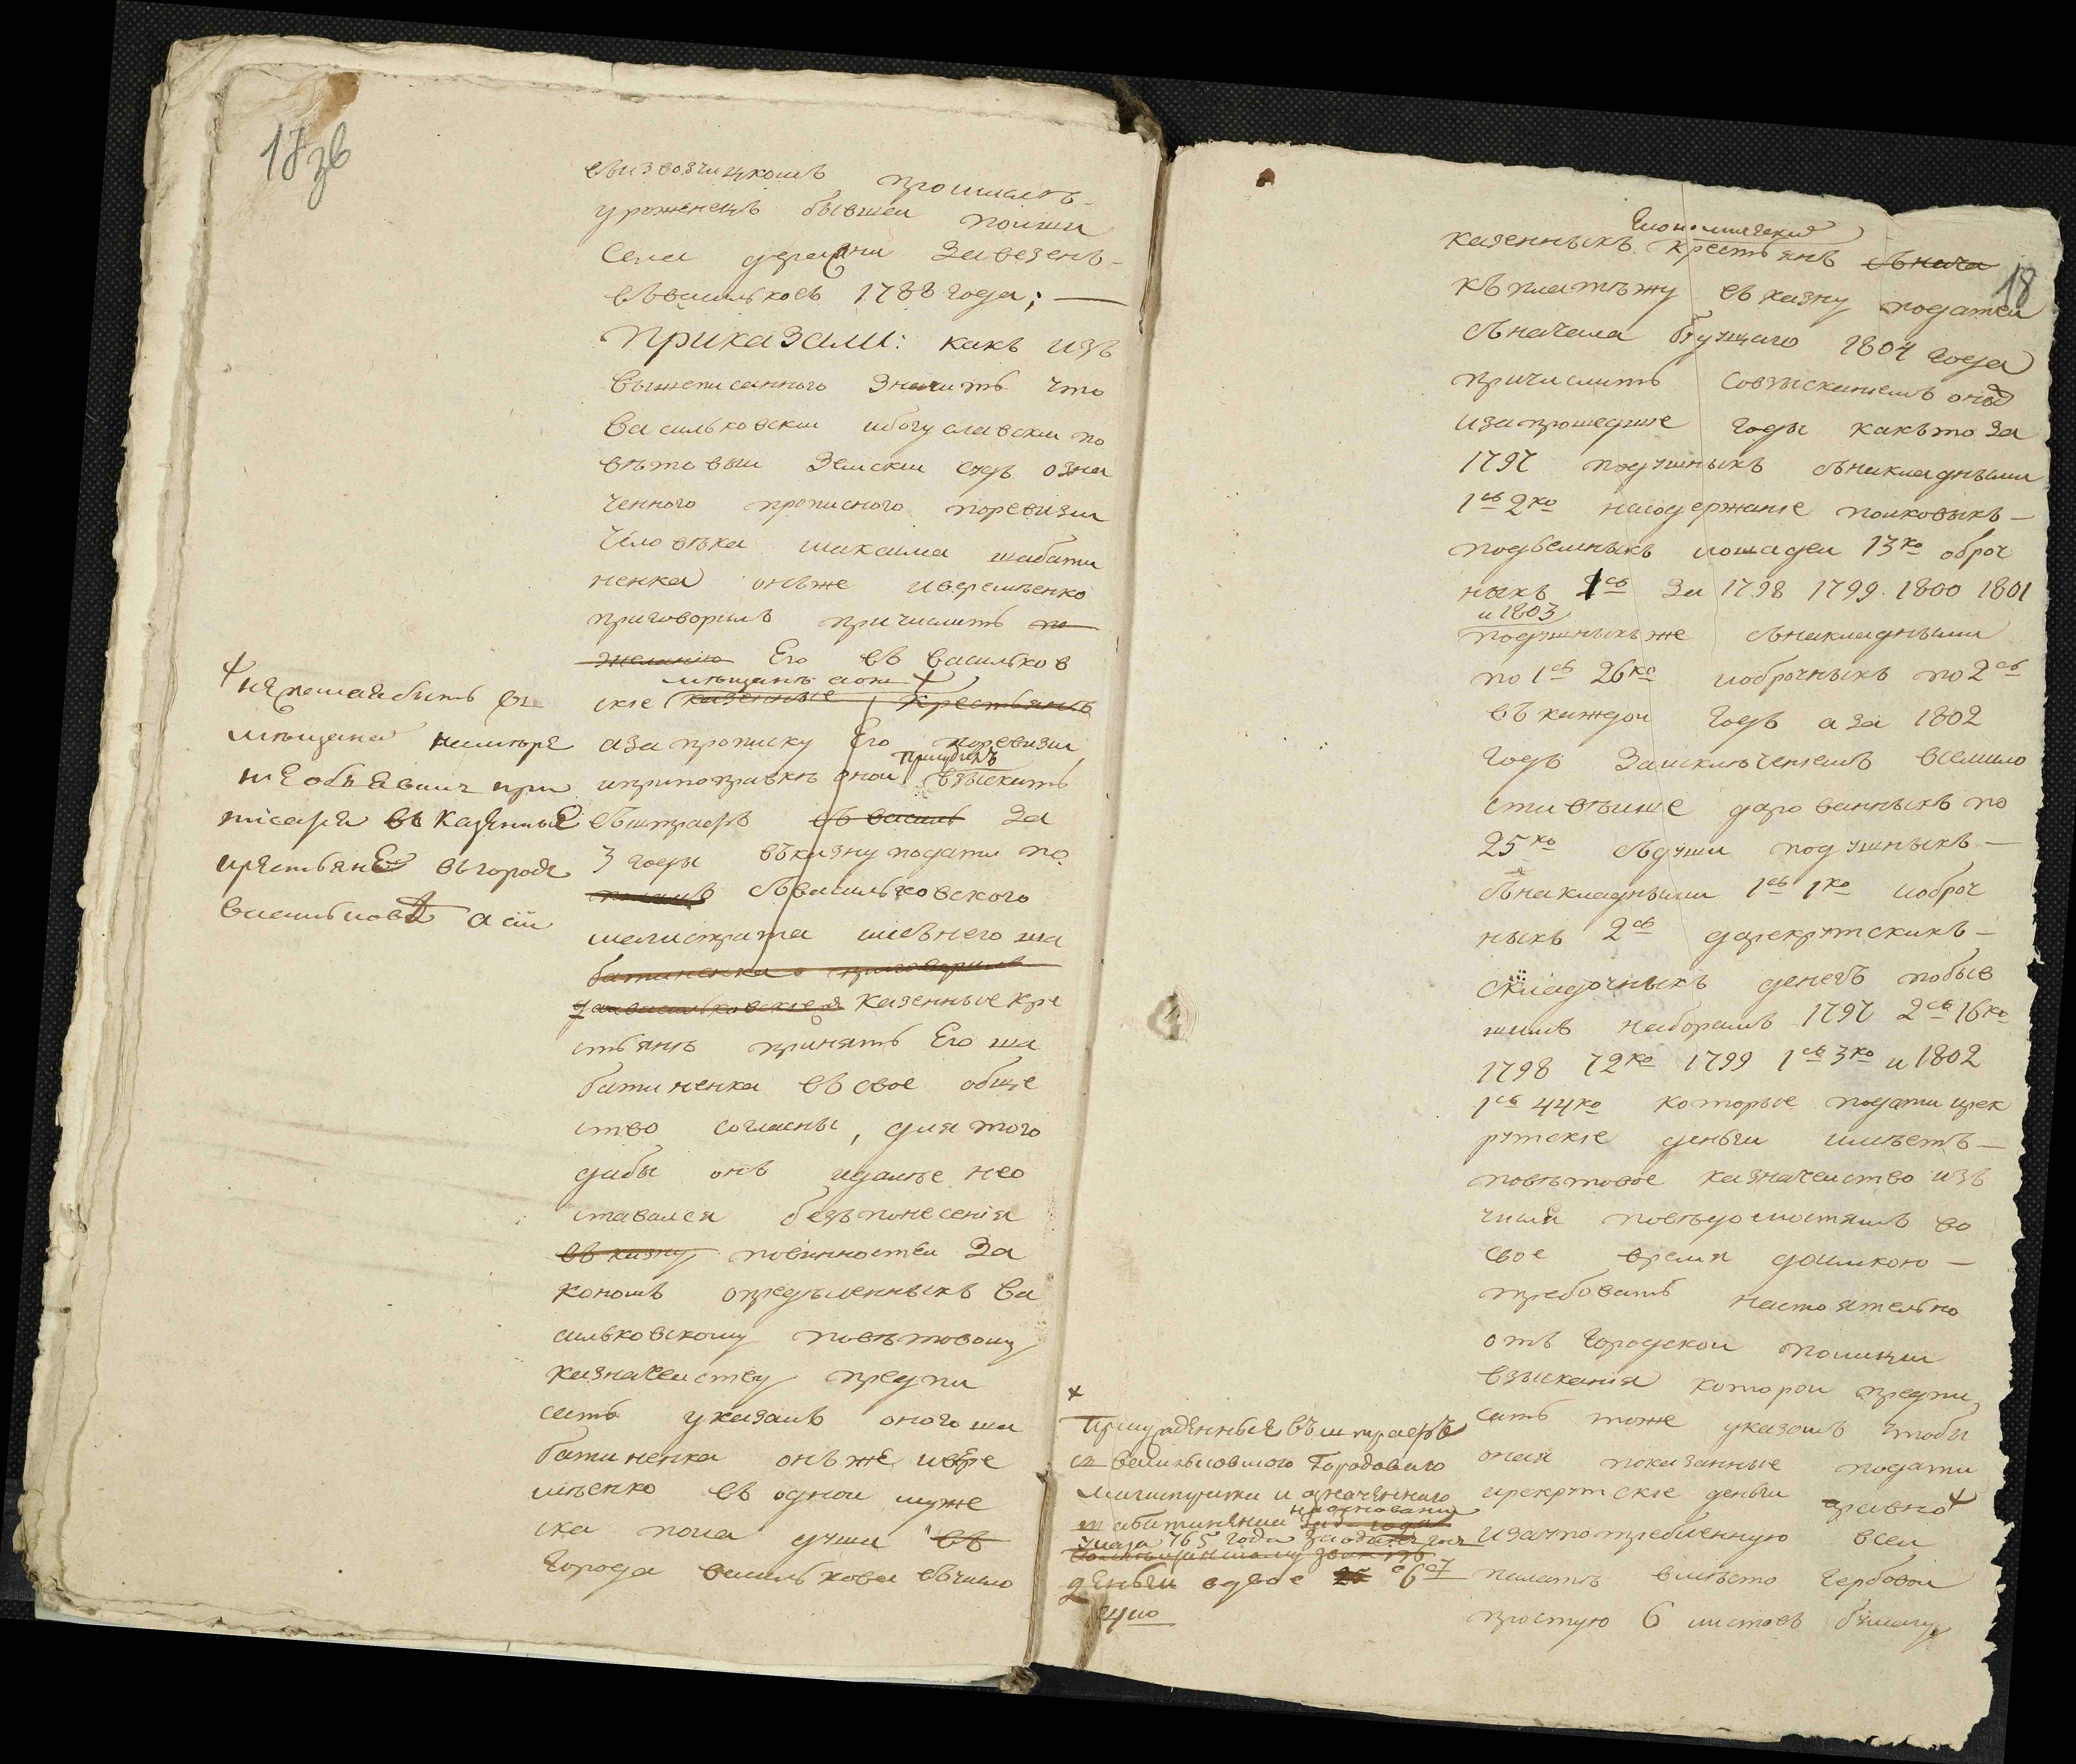 17 зв
въизвозчицкомъ промыслѣ
уроженецъ бывшеи полши
села держани завезенъ
въвасильковъ 1788 года; —
Приказали: какъ изъ
вышеписанного значитъ что
васильковскии ибогуславскии по
вѣтовыи земскии судъ озна
ченного прописного поревизии
человѣка максима шабати
ненка онъже иверемѣенко
приговорилъ причислить по
желанию Его въ василков
мѣщанъ
ские казенные крестьянъ
азапрописку Его поревизии
иприпоправкѣ онои взыскать
въштрафъ съ василь за
3 годы вказну подати по
съвасильковского
магистрата имѣнего ша
батиненка приговорилъ
казенные кре
стьянѣ принять Его ша
батиненка въ свое обще
ство согласны, для того
дабы онъ идалѣе нео
ставался безъ понесенія
въ казну повинностеи за
кономъ опредѣленныхъ ва
сильковскому повѣтовому
казначеиству предпи
сать указомъ оного ша
батиненка онъже, ивере
мѣенко въ однои муже
ска пола души въ
города василькова въчисло
нежелая быть въ
мѣщанъ
необъявилъ при
писатя въ казенные
крестьянЕ въ городе
васильковѣ
18
Економическия
казенныхъ крестьянъ съ нача
къ платѣжу въ казну податеи
съначала будущаго 1804 года
причислить совзысканиемъ оныхъ
изапрошедшие годы какъто за
1797 подушныхъ снакладными
1 ко 2 ко насодержание полковыхъ —
подъемныхъ лошадеи 13 ко оброч
ныхъ 1 за 1798 1799. 1800 1801
и 1803
подушныхъже снакладными
по 1 26 ко иоброчныхъ по 2
въкаждои годъ а за 1802
годъ заисключениемъ всемило
стивѣише дарованныхъ по
25 ко съдуши подушныхъ —
снакладными 1 1 ко иоброч
ныхъ 2 дарекрутскихъ —
складочныхъ денегъ побыв
шимъ наборамъ 1797 2 16 ко
1798 72 ко 1799 1 3 ко и 1802
1 44 ко которые подати ирек
рутские деньги имѣетъ —
повѣтовое казначеиство изъ
числя повѣдомостямъ во
свое время доимкою —
требовать настоятельно
отъ городскои полиции
взыскания которои предпи
сать тоже указомъ чтобы
оная показанные подати
ирекрутские деньги равно
изаупотребленную всеи
палатѣ вмѣсто гербовои
простую 6 листовъ бумагу
присужденныя въ штрафъ
съ васильковского городоваго
магистрата и означенного
шабатиненка наоснованіи
указа 765 года заодинъ годъ
деньги вдвое 6